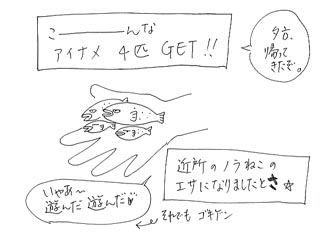 こ――――んな
アイナメ 4匹 GET!!
夕方、
帰って
きたぞ。
近所のノラねこの
エサになりましたとさ☆
いやあ～
遊んだ遊んだ♥
それでもゴキゲン